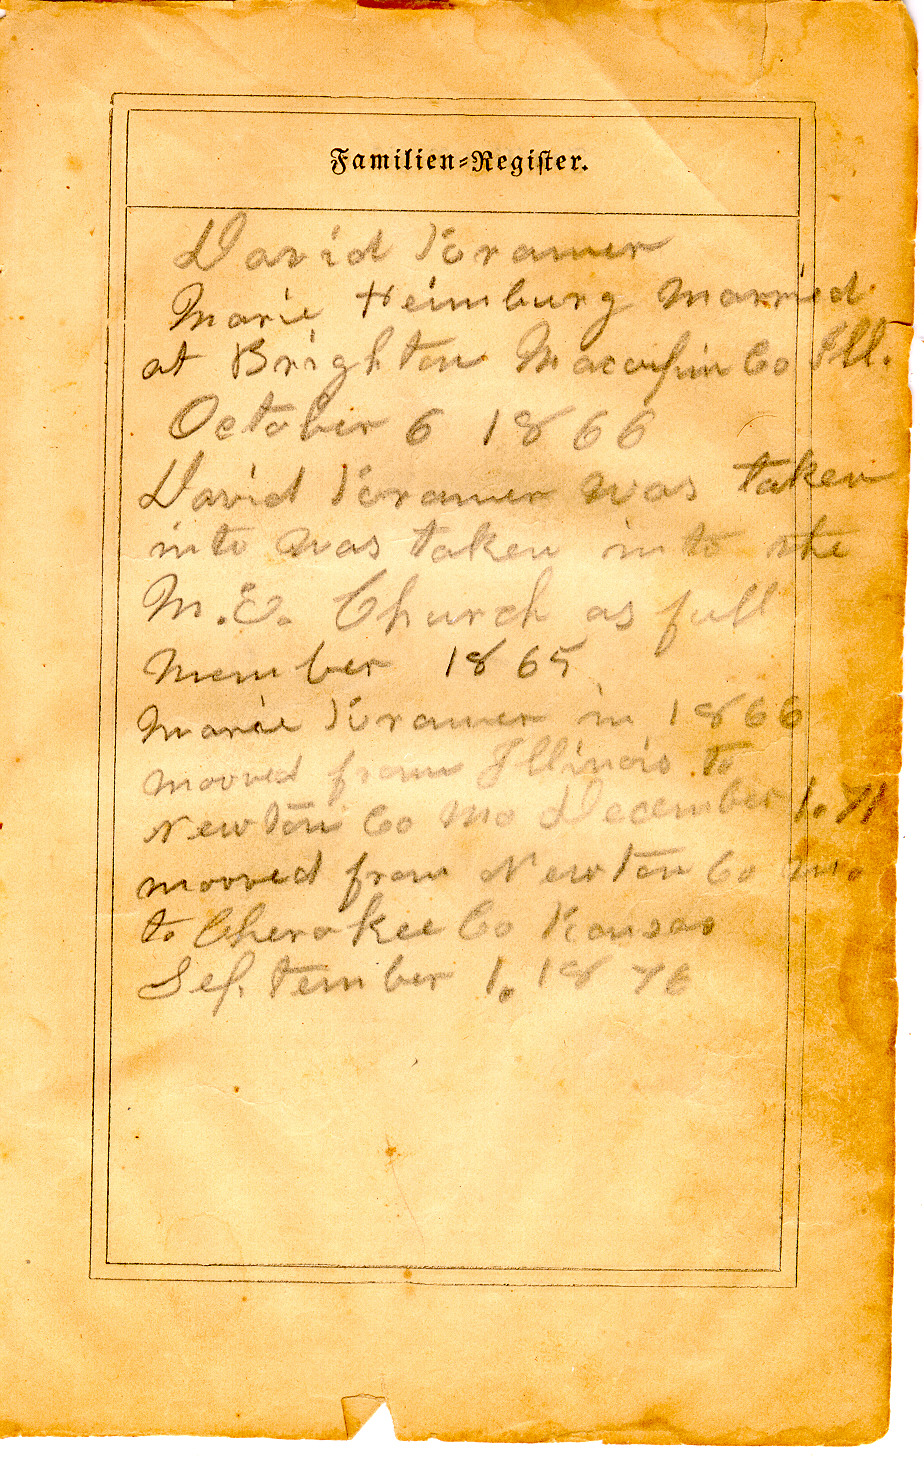 Familien-Register.
David Kramer
Marie Heimburg Married
at Brighton Macoupin Co Ill.
October 6 1866
David Kramer was taken
into was taken into the
M.E. Church as full
Member 1865
Marie Kramer in 1866
mooved from Illinois to
Newton Co Mo December 1. 71
mooved from Newton Co Mo
to Cherokee Co Kansas
September 1. 1876